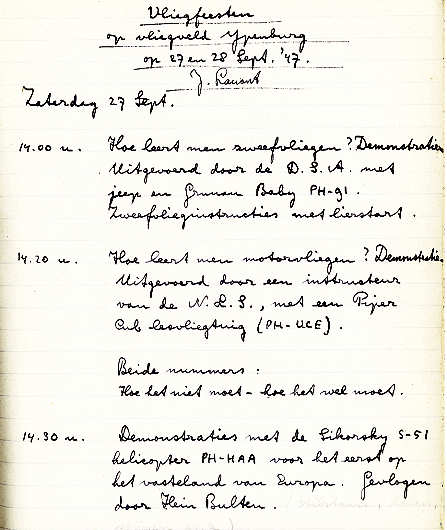 Vliegfeesten
op vliegveld Ypenburg
op 27 en 28 Sept. '47.
Zaterdag 27 Sept.
14.00 u. Hoe leert men zweefvliegen? Demonstraties
Uitgevoerd door de D.S.A. met
jeep en Grunau Baby PH-91.
Zweefvlieginstructies met lierstart.
14.20 u. Hoe leert men motorvliegen? Demonstratie.
Uitgevoerd door een instructeur
van de N.L.S., met een Piper
Cub lesvliegtuig (PH-UCE).
Beide nummers:
Hoe het niet moet - hoe het wel moet.
14.30 u. Demonstraties met de Sikorsky S-51
helicopter PH-HAA voor het eerst op
het vasteland van Europa. Gevlogen
door Hein Bulten.